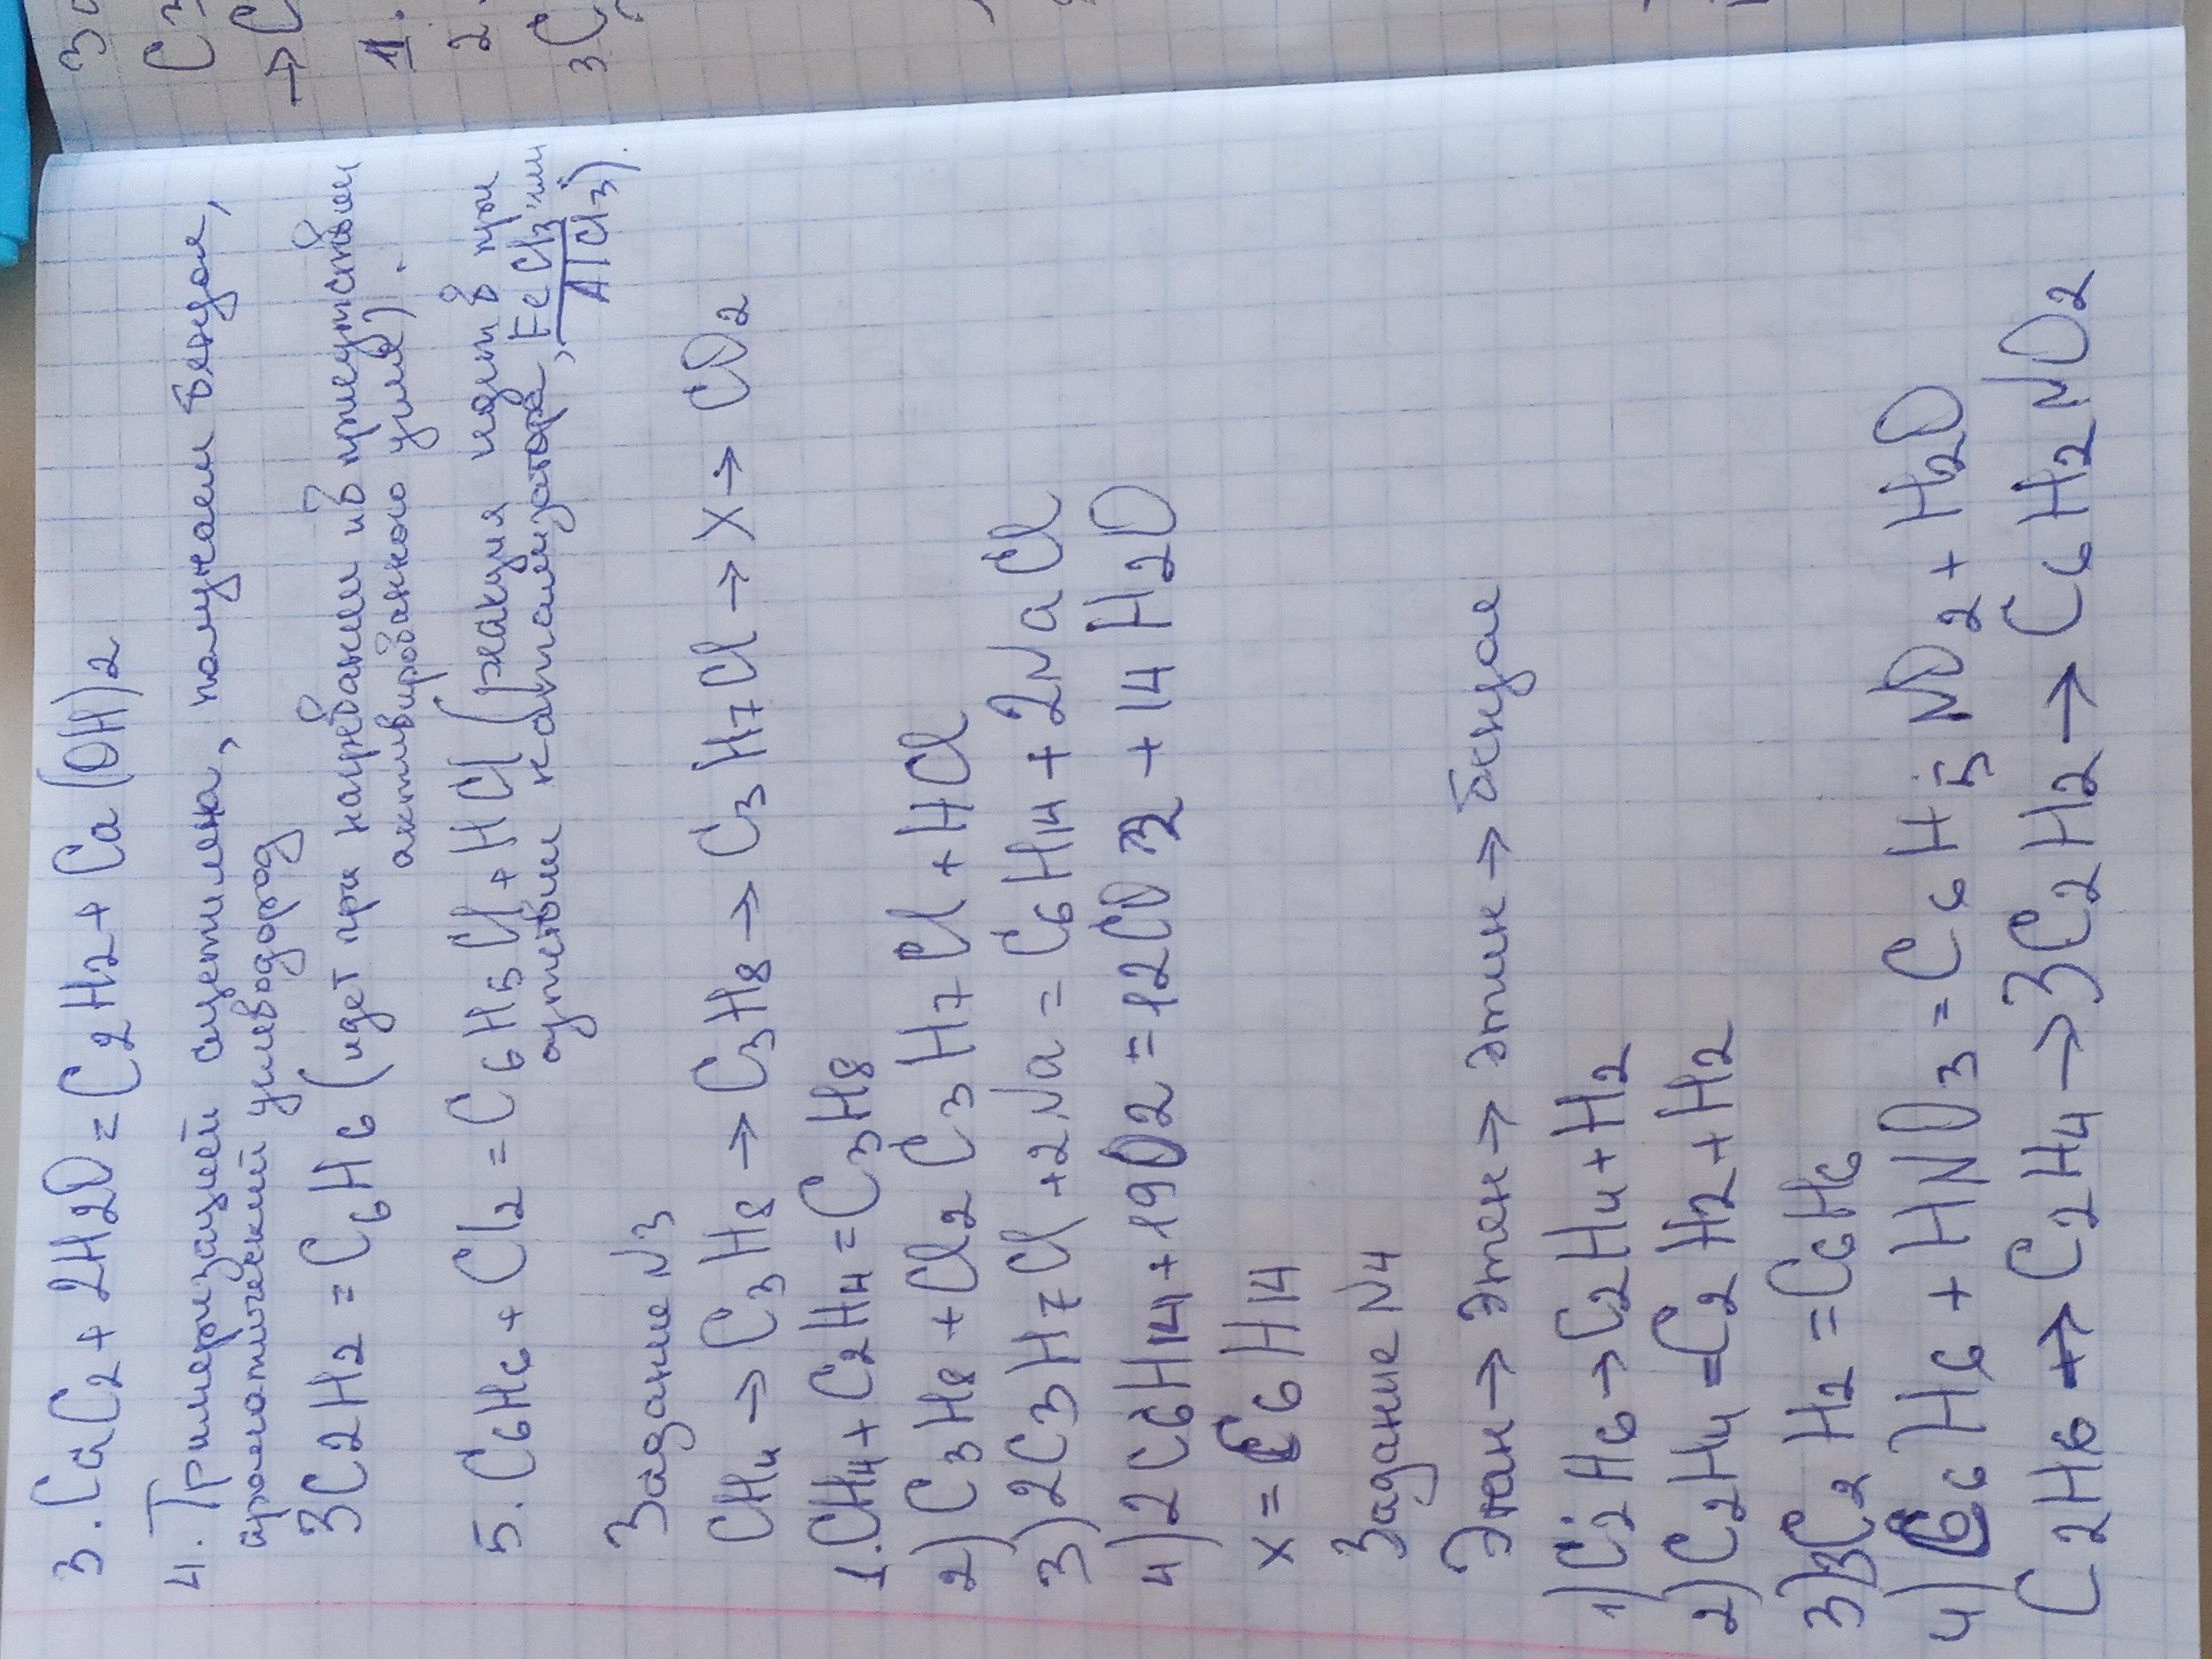 3. CaC2 + 2H2O = C2H2 + Ca(OH)2
4. Тримеризацией ацетилена, получаем бензол,
ароматический углеводород
3C2H2 = C6H6 (идет при нагревании и в присутствии
активированного угля).
5. C6H6 + Cl2 = C6H5Cl + HCl (реакция идет в при
сутствии катализатора, FeCl3 или
AlCl3).
Задание N3
CH4 → C3H8 → C3H8 → C3H7Cl → X → CO2
1. CH4 + C2H4 = C3H8
2) C3H8 + Cl2 C3H7Cl + HCl
3) 2C3H7Cl + 2Na = C6H14 + 2NaCl
4) 2C6H14 + 19O2 = 12CO2 + 14H2O
x = C6H14
Задание N4
Этан → Этен → Этин → бензол
1) C2H6 → C2H4 + H2
2) C2H4 = C2H2 + H2
3) 3C2H2 = C6H6
4) C6H6 + HNO3 = C6H5NO2 + H2O
C2H6 → C2H4 → 3C2H2 → C6H2NO2
3
C3
→ C
1.
2.
3C